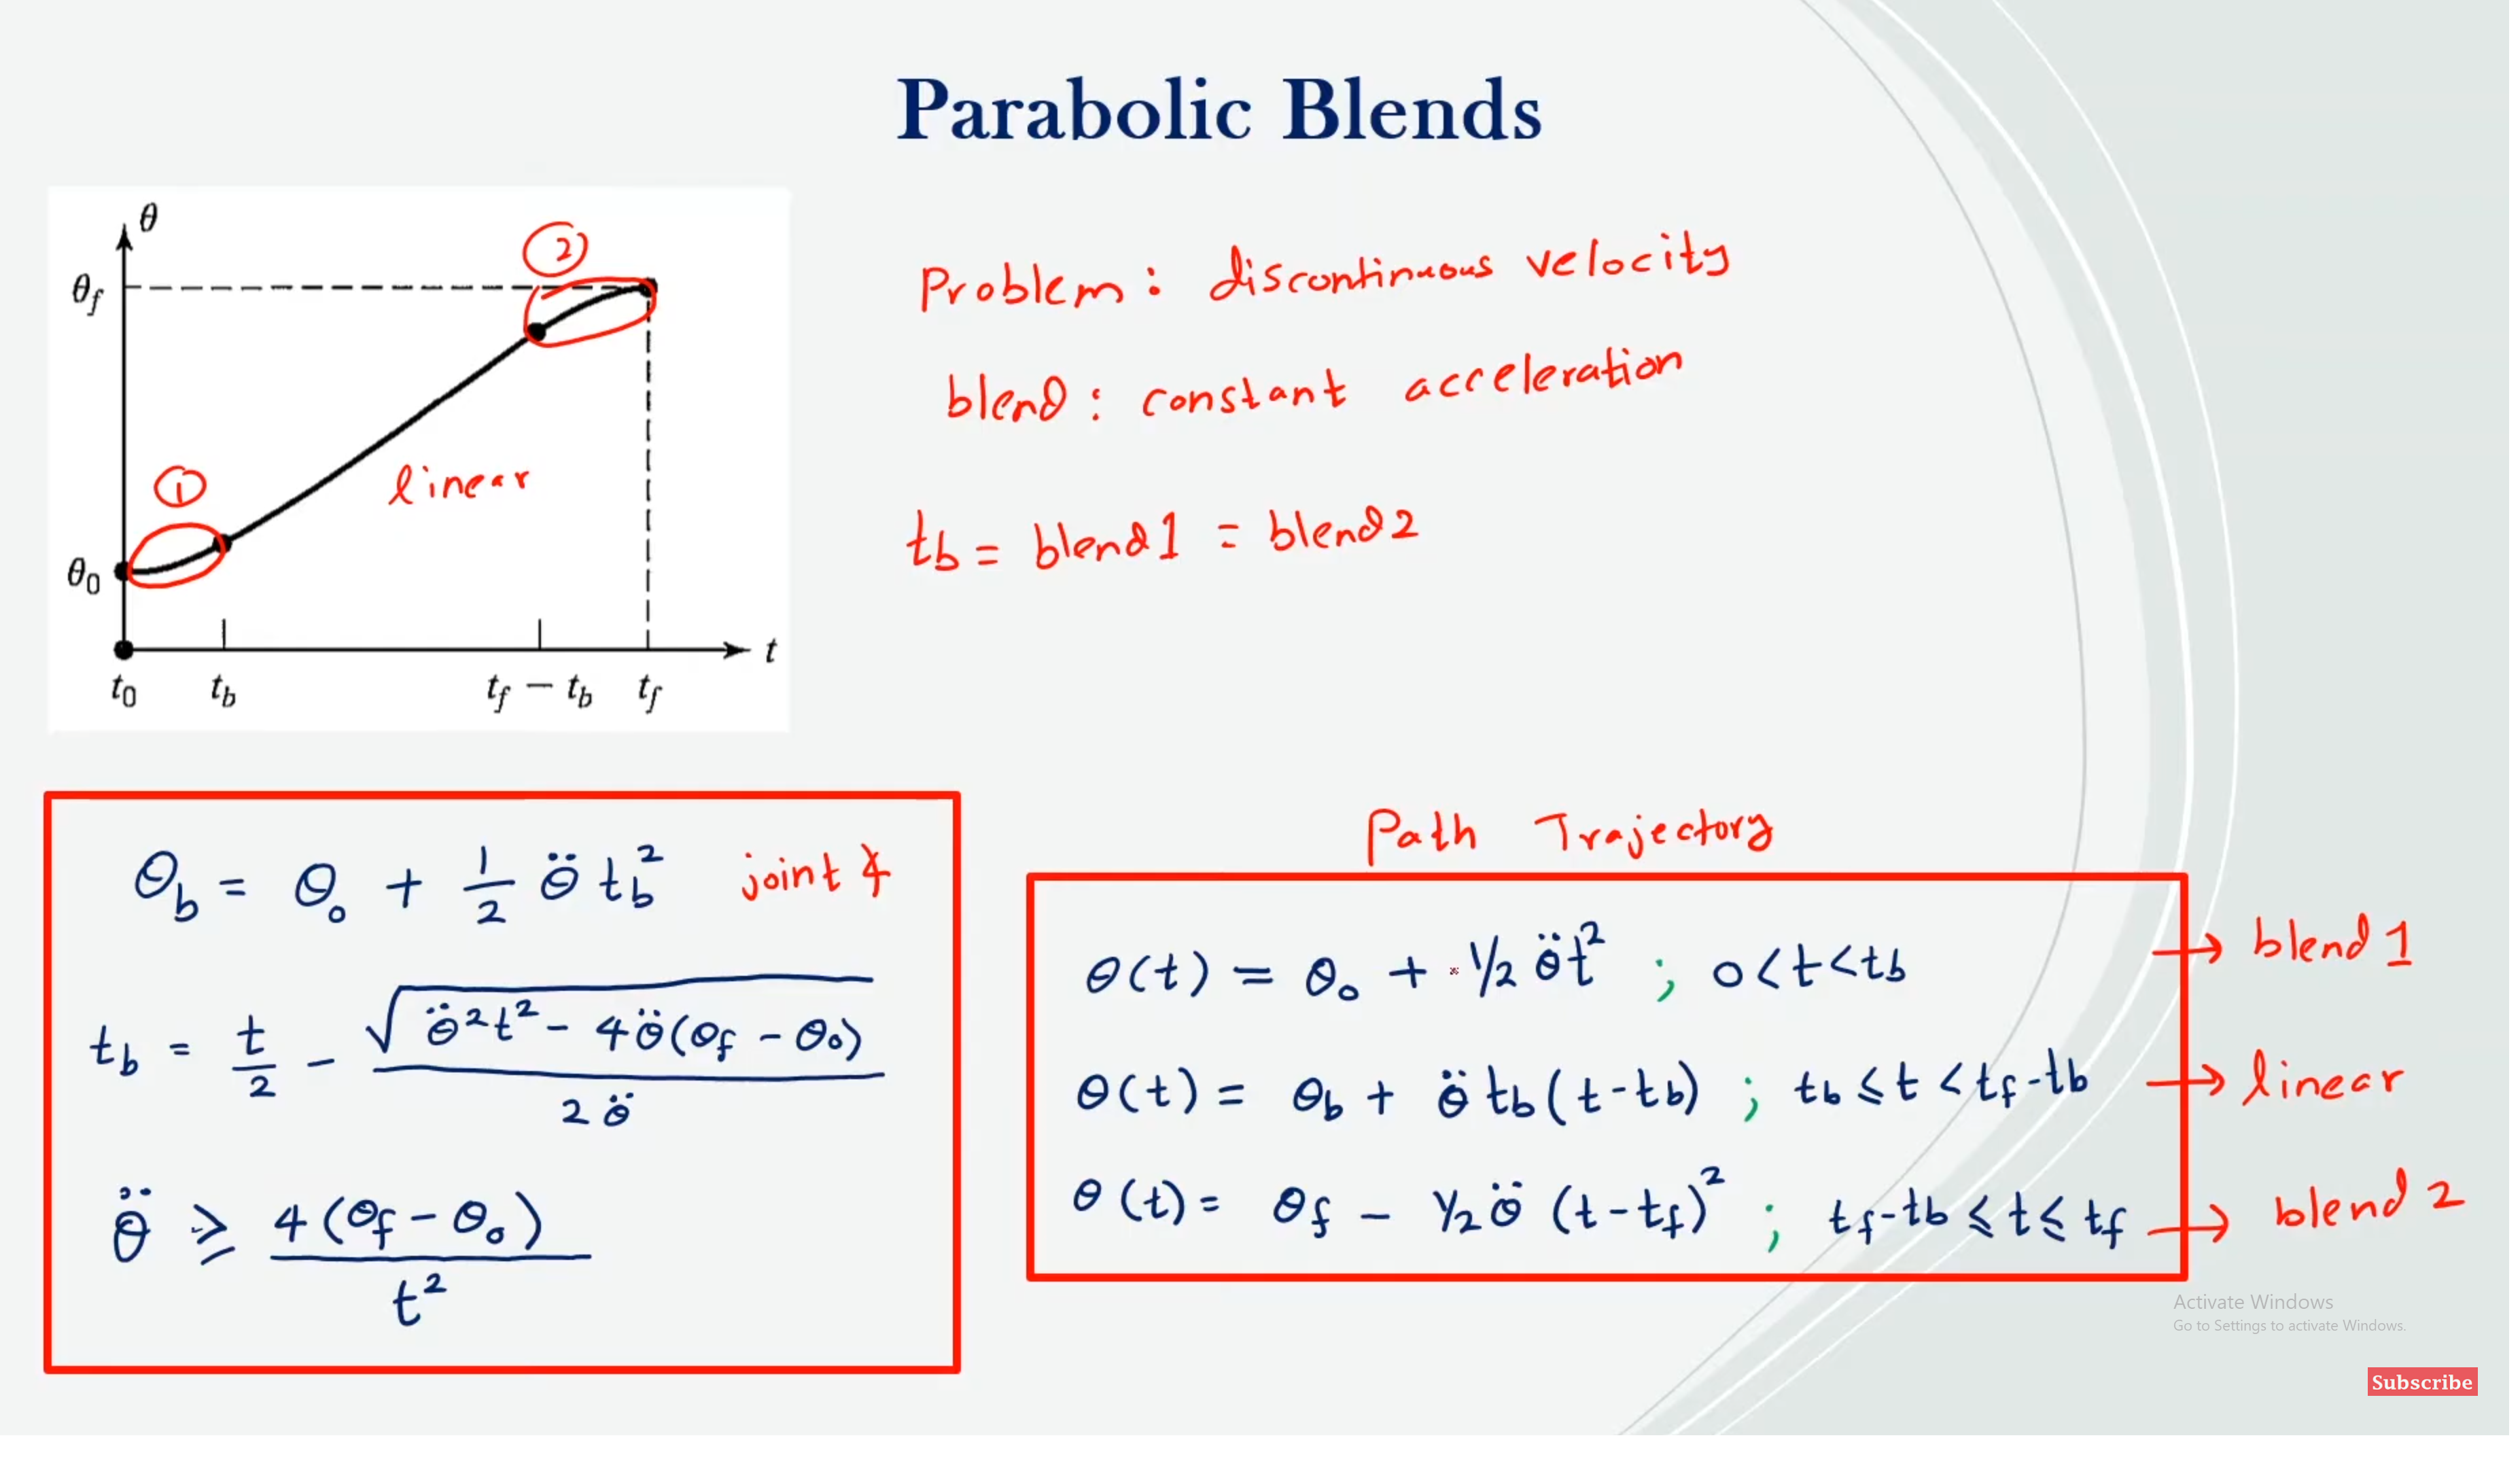 Parabolic Blends
θ
θf
θ0
t0 tb tf − tb tf t
①
②
linear
Problem : discontinuous velocity
blend : constant acceleration
tb = blend 1 = blend 2
θb = θ₀ + 1/2 θ̈ tb² joint ∡
tb = t/2 − √(θ̈²t² − 4θ̈(θf − θ₀)) / 2θ̈
θ̈ ⩾ 4(θf − θ₀) / t²
Path Trajectory
θ(t) = θ₀ + ½ θ̈t² ; 0 < t < tb → blend 1
θ(t) = θb + θ̈ tb (t - tb) ; tb ⩽ t < tf - tb → linear
θ(t) = θf − ½ θ̈ (t - tf)² ; tf - tb ⩽ t ⩽ tf → blend 2
Activate Windows
Go to Settings to activate Windows.
Subscribe